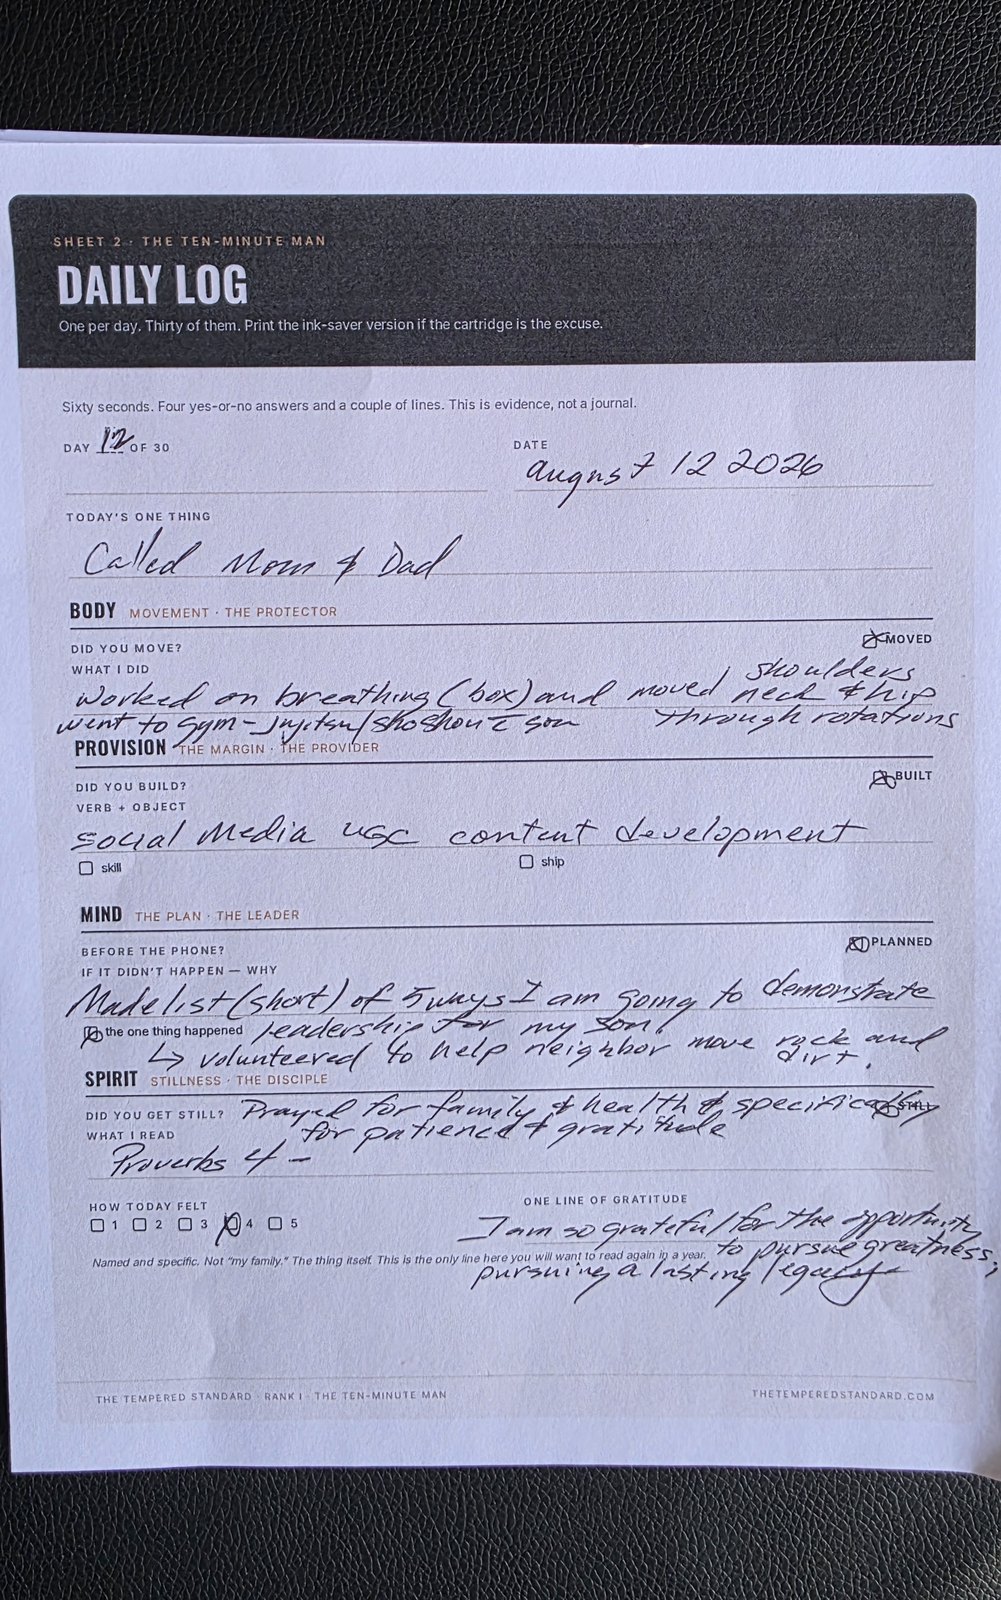 SHEET 2 · THE TEN-MINUTE MAN
DAILY LOG
One per day. Thirty of them. Print the ink-saver version if the cartridge is the excuse.
Sixty seconds. Four yes-or-no answers and a couple of lines. This is evidence, not a journal.
DAY 12 OF 30
DATE
august 12 2026
TODAY'S ONE THING
Called Mom & Dad
BODY MOVEMENT · THE PROTECTOR
DID YOU MOVE?
MOVED
WHAT I DID
worked on breathing (box) and moved shoulders
neck & hip
through rotations
went to gym - jujitsu/ son
PROVISION THE MARGIN · THE PROVIDER
DID YOU BUILD?
BUILT
VERB + OBJECT
social Media UGC content development
skill
ship
MIND THE PLAN · THE LEADER
BEFORE THE PHONE?
PLANNED
IF IT DIDN'T HAPPEN — WHY
Made list (short) of 5 ways I am going to demonstrate
the one thing happened
leadership for my son!
↳ volunteered to help neighbor move rock and
dirt.
SPIRIT STILLNESS · THE DISCIPLE
DID YOU GET STILL?
Prayed for family & health & specifically
STILL
for patience & gratitude
WHAT I READ
Proverbs 4 -
HOW TODAY FELT
1 2 3 4 5
ONE LINE OF GRATITUDE
I am so grateful for the opportunity
to pursue greatness,
pursuing a lasting legacy
Named and specific. Not "my family." The thing itself. This is the only line here you will want to read again in a year.
THE TEMPERED STANDARD · RANK I · THE TEN-MINUTE MAN
THETEMPEREDSTANDARD.COM